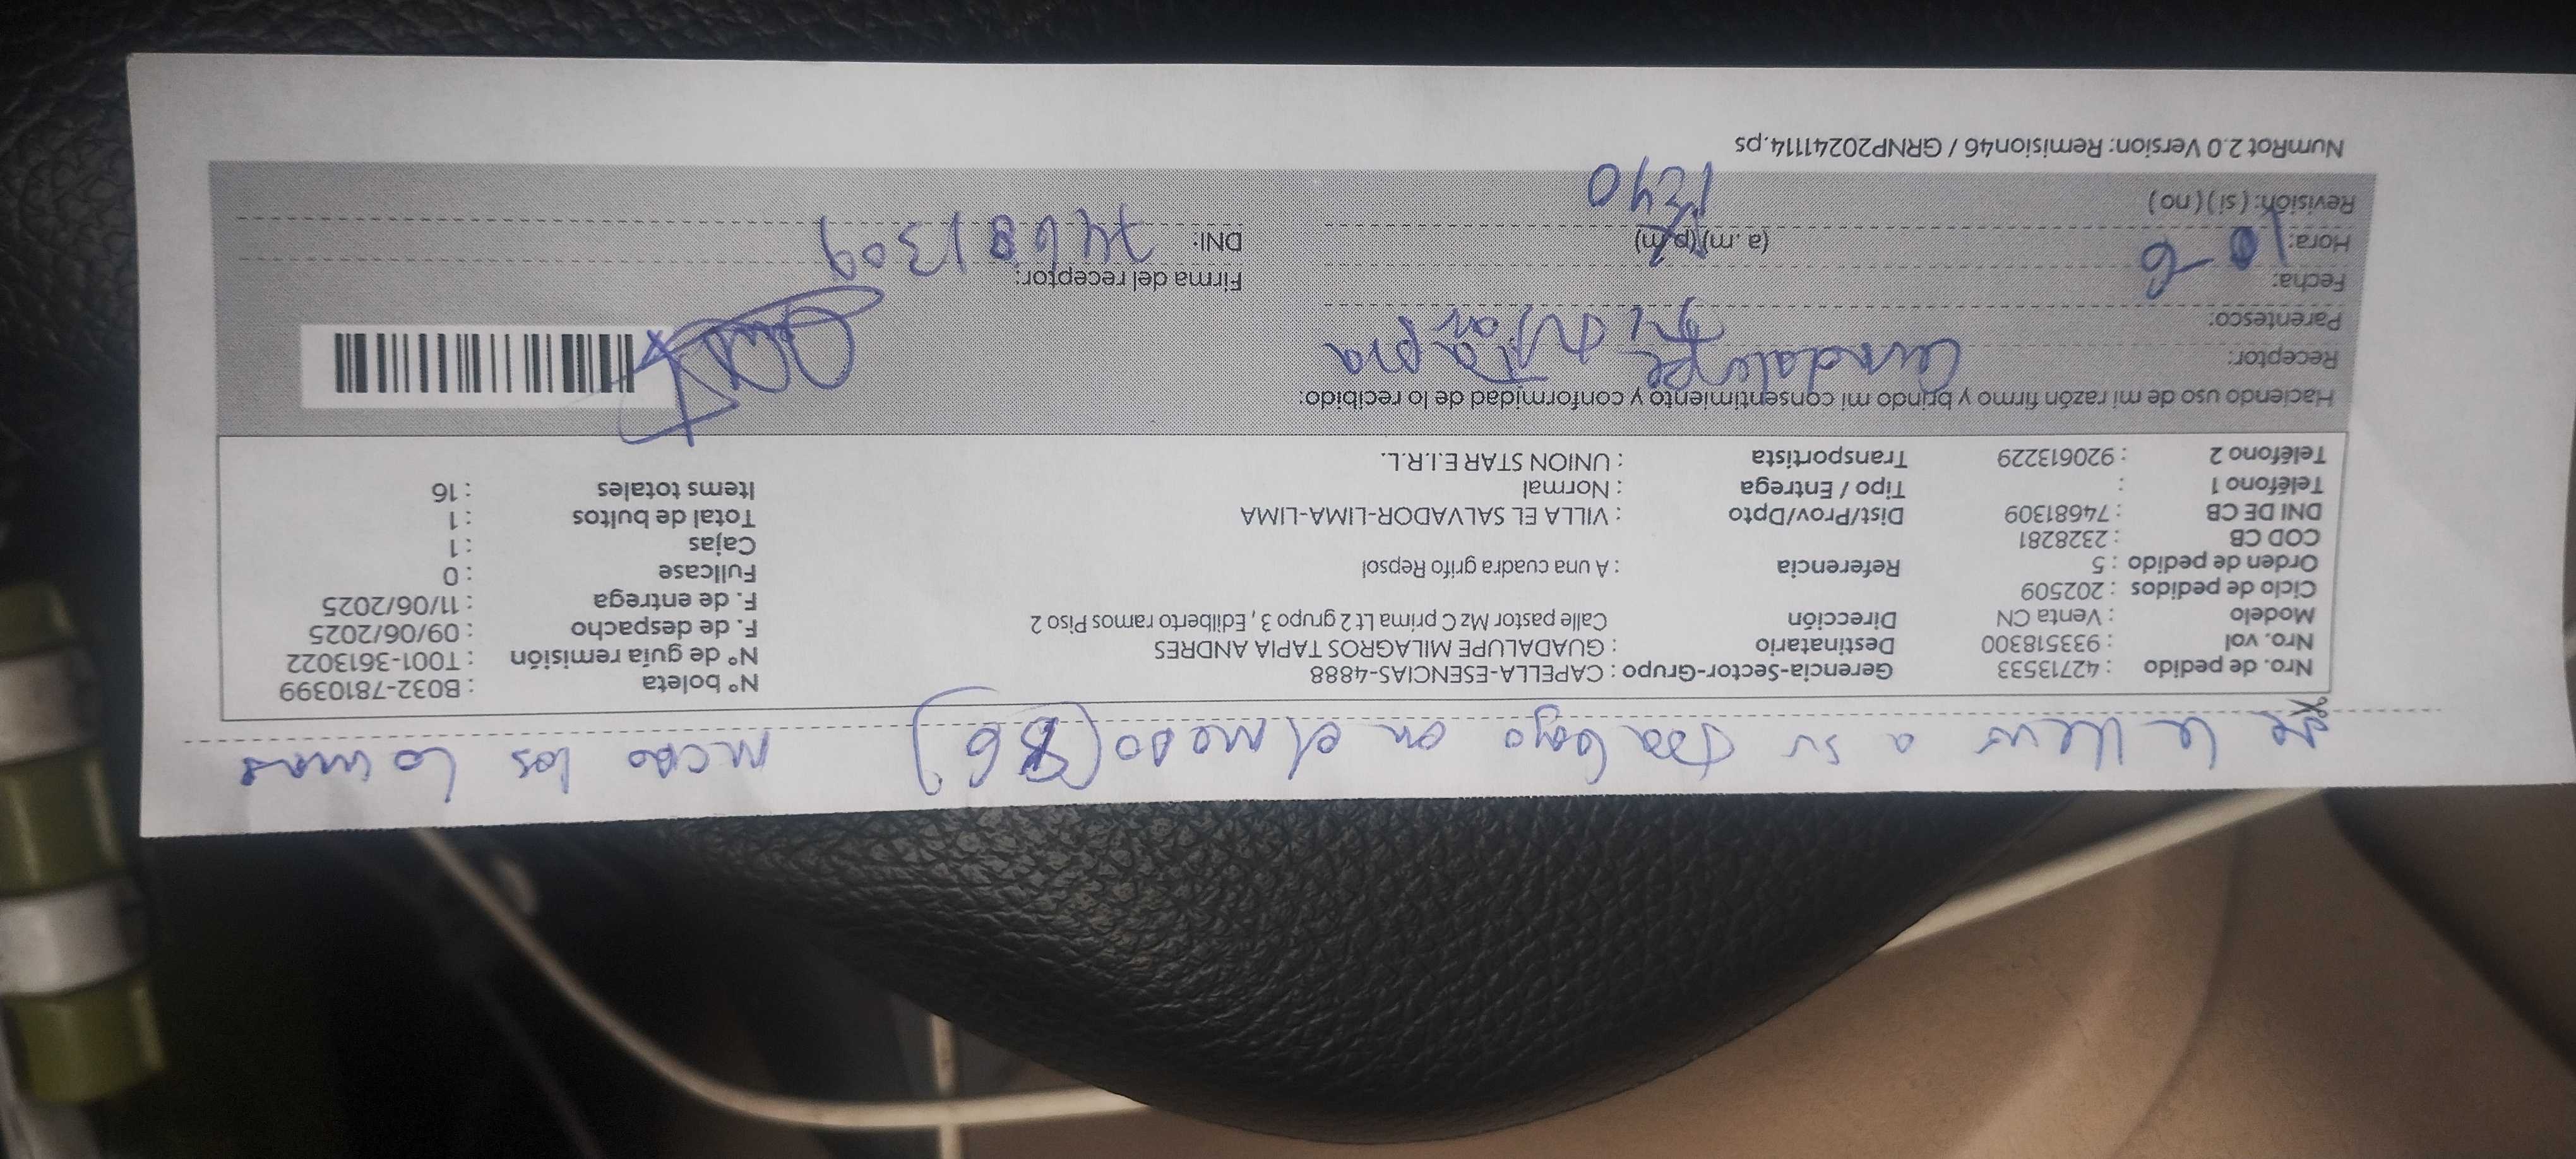 Se le llevo a su trabajo en el mercado (86) Micro los lomas
Nro. de pedido : 42713533 Gerencia-Sector-Grupo : CAPELLA-ESENCIAS-4888 N° boleta : B032-7810399
Nro. vol : 933518300 Destinatario : GUADALUPE MILAGROS TAPIA ANDRES N° de guía remisión : T001-3613022
Modelo : Venta CN Dirección Calle pastor Mz C prima Lt 2 grupo 3 , Edilberto ramos Piso 2 F. de despacho : 09/06/2025
Ciclo de pedidos : 202509 F. de entrega : 11/06/2025
Orden de pedido : 5 Referencia : A una cuadra grifo Repsol Fullcase : 0
COD CB : 2328281 Cajas : 1
DNI DE CB : 74681309 Dist/Prov/Dpto : VILLA EL SALVADOR-LIMA-LIMA Total de bultos : 1
Teléfono 1 : Tipo / Entrega : Normal Items totales : 16
Teléfono 2 : 920613229 Transportista : UNION STAR E.I.R.L.
Haciendo uso de mi razón firmo y brindo mi consentimiento y conformidad de lo recibido:
Receptor: Guadalupe Tapia
Parentesco:
Fecha: 10-6 Firma del receptor:
Hora: (a. m) (p. m) DNI: 74681309
Revisión: ( si ) ( no ) 1240
NumRot 2.0 Version: Remision46 / GRNP20241114.ps